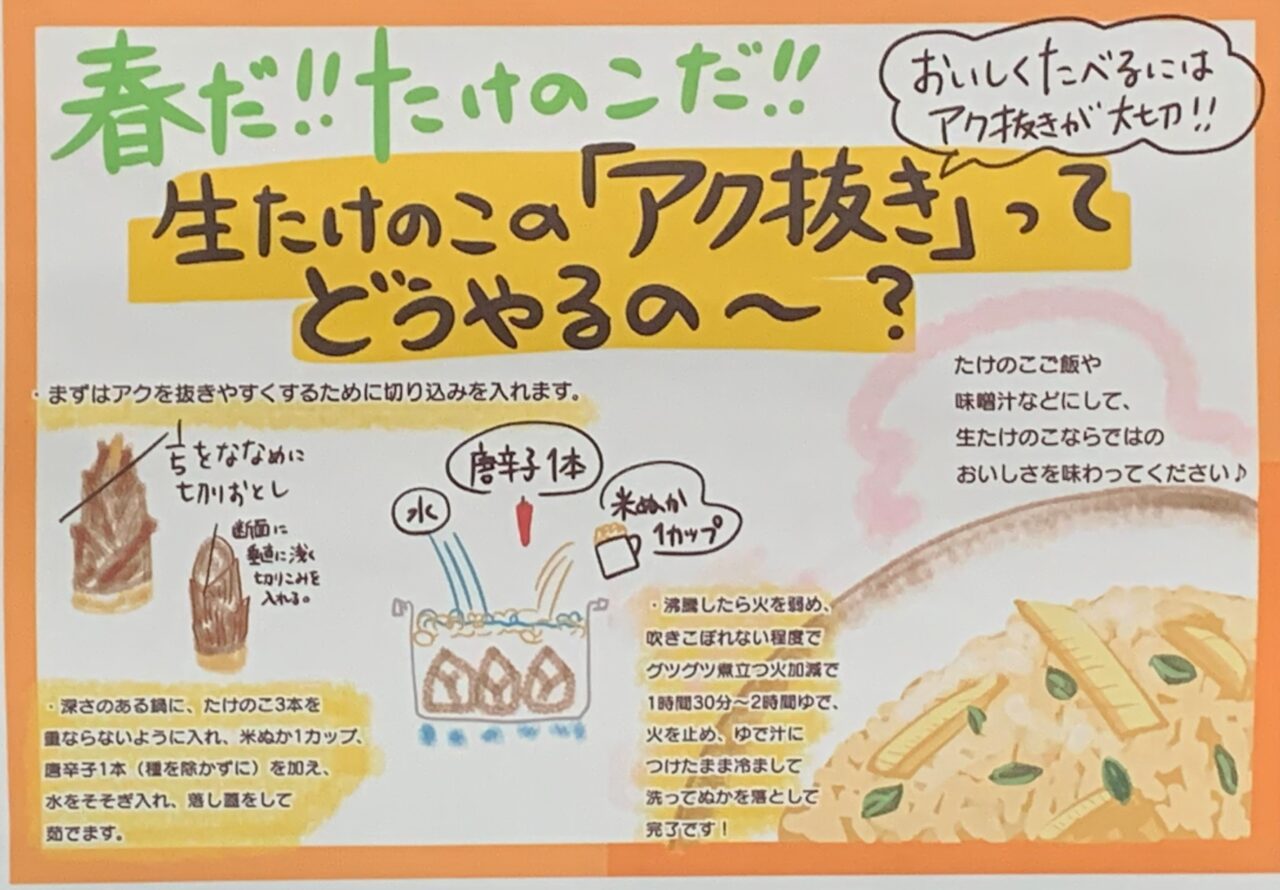 春だ!!たけのこだ!!
おいしくたべるには
アク抜きが大切!!
生たけのこの「アク抜き」って
どうやるの〜?
・まずはアクを抜きやすくするために切り込みを入れます。
1/5をななめに
切りおとし
断面に
垂直に浅く
切りこみを
入れる。
水
唐辛子1本
米ぬか
1カップ
・深さのある鍋に、たけのこ3本を
重ならないように入れ、米ぬか1カップ、
唐辛子1本(種を除かずに)を加え、
水をそそぎ入れ、落し蓋をして
茹でます。
・沸騰したら火を弱め、
吹きこぼれない程度で
グツグツ煮立つ火加減で
1時間30分〜2時間ゆで、
火を止め、ゆで汁に
つけたまま冷まして
洗ってぬかを落として
完了です!
たけのこご飯や
味噌汁などにして、
生たけのこならではの
おいしさを味わってください♪